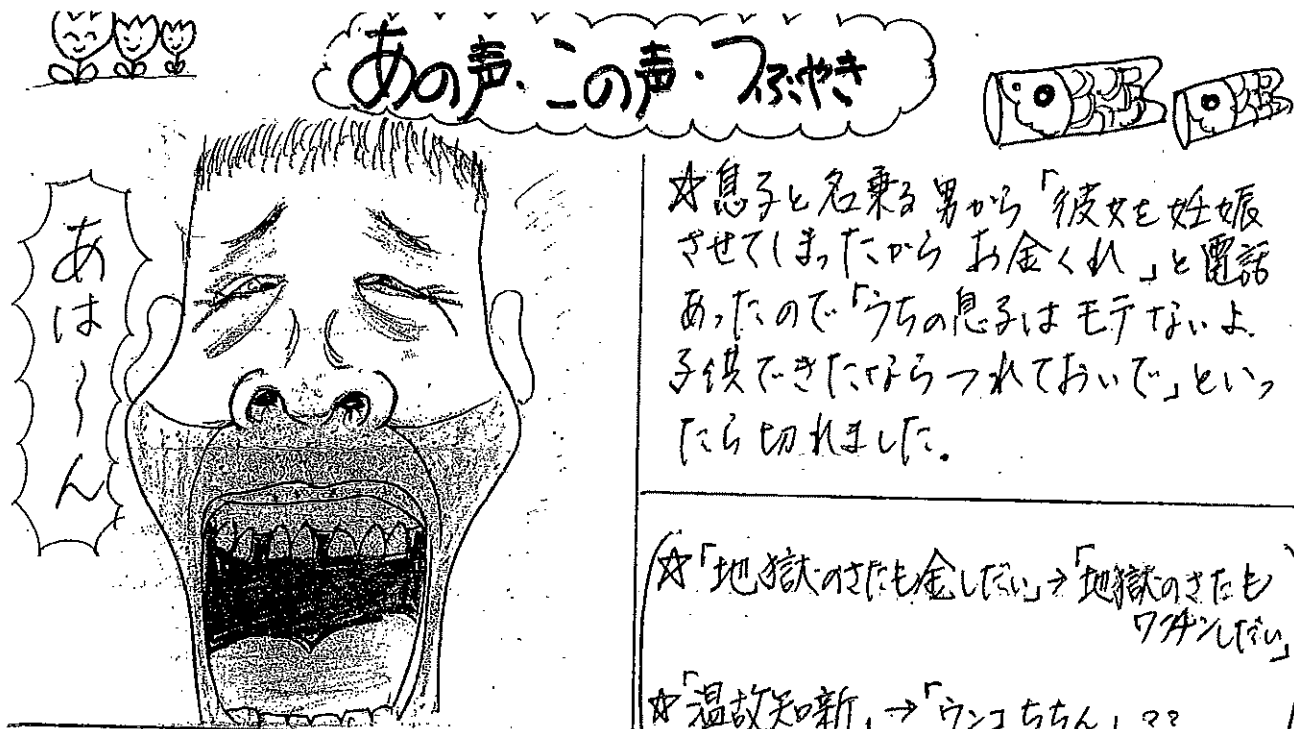 あの声・この声・つぶやき
あは〜ん
☆息子と名乗る男から「彼女を妊娠
させてしまったから お金くれ」と電話
あったので「うちの息子は モテないよ.
子供できたなら つれておいで」といっ
たら切れました。
☆「地獄のさたも金しだい」→「地獄のさたも
ワクチンしだい」
☆「温故知新」→「ウンコちちん」??